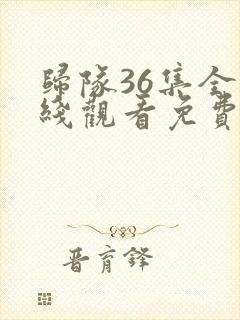 歸隊36集全
綫觀看免費
晋育鋒